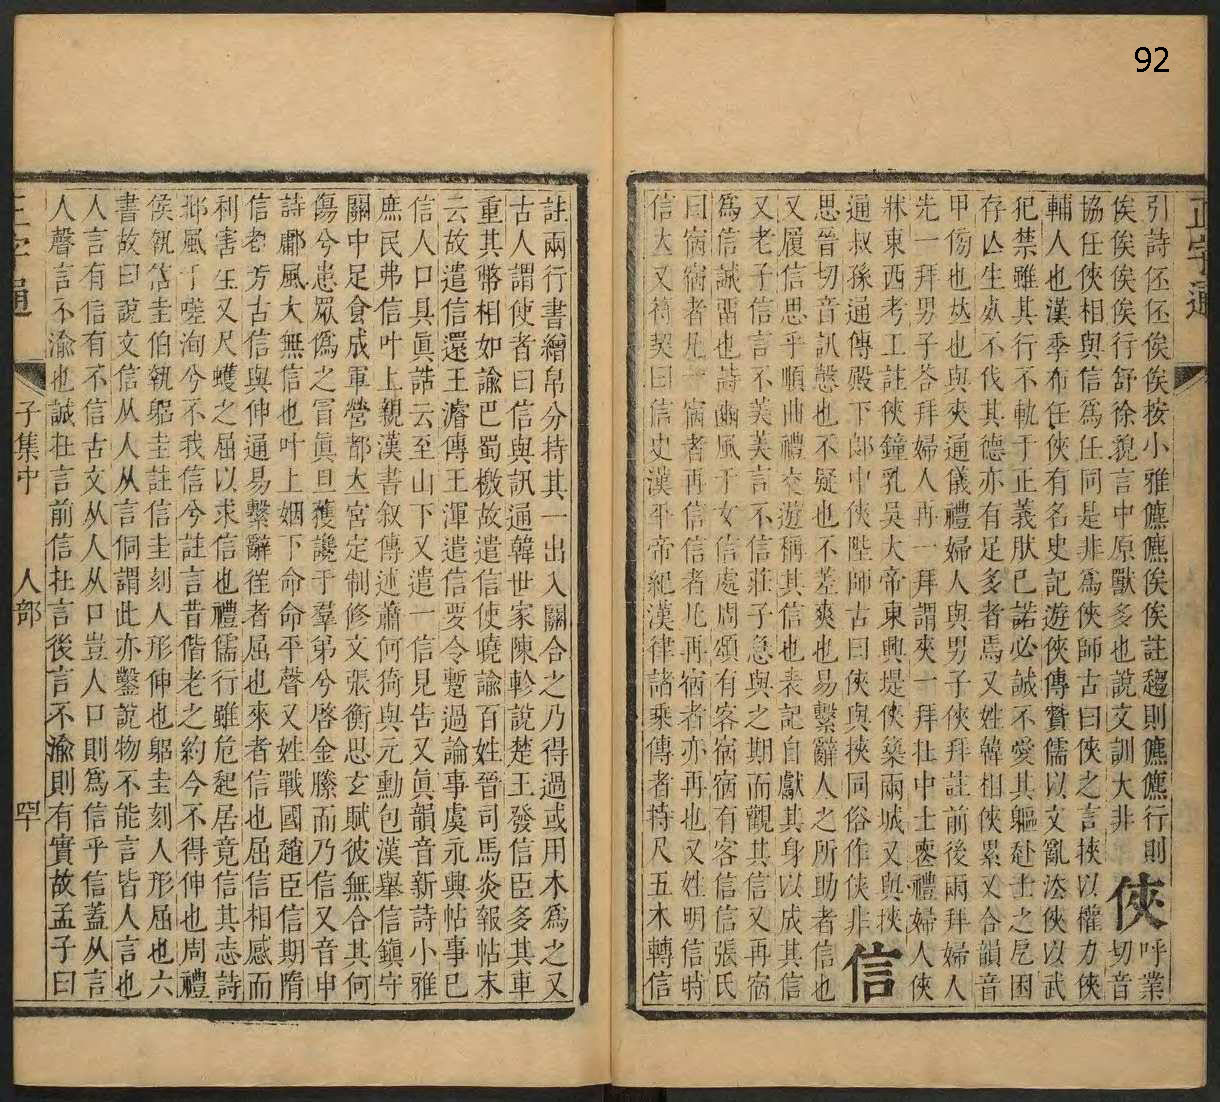 92
正字通
引詩伾伾俟俟按小雅儦儦俟俟註趨則儦儦行則
俟俟俟俟行舒徐貌言中原獸多也說文訓大非 俠 呼業
切音
協任俠相與信爲任同是非爲俠師古曰俠之言挾以權力俠
輔人也漢季布任俠有名史記遊俠傳贊儒以文亂法俠以武
犯禁雖其行不軌于正義肰已諾必誠不愛其軀赴士之戹困
存亾生𣦸不伐其德亦有足多者焉又姓韓相俠累又合韻音
甲傍也𠀤也與夾通儀禮婦人與男子俠拜註前後兩拜婦人
先一拜男子荅拜婦人再一拜謂夾一拜在中士喪禮婦人俠
牀東西考工註俠鐘乳吳大帝東興堤俠築兩城又與挾
通叔孫通傳殿下郎中俠陛師古曰俠與挾同俗作俠非 信
思晉切音訊慤也不疑也不差爽也易繫辭人之所助者信也
又履信思乎順曲禮交遊稱其信也表記自獻其身以成其信
又老子信言不美美言不信莊子急與之期而觀其信又再宿
爲信誠畱也詩豳風于女信處周頌有客宿宿有客信信張氏
曰宿宿者凡一宿者再信信者凡再宿者亦再也又姓明信時
信大又符契曰信史漢平帝紀漢律諸乘傳者持尺五木轉信
註兩行書繒帛分持其一出入關合之乃得過或用木爲之又
古人謂使者曰信與訊通韓世家陳軫說楚王發信臣多其車
重其幣相如諭巴蜀檄故遣信使曉諭百姓晉司馬炎報帖末
云故遣信還王濬傳王渾遣信要令蹔過論事虞永興帖事已
信人口具眞誥云至山下又遣一信見告又眞韻音新詩小雅
庶民弗信叶上親漢書叙傳述蕭何猗與元勳包漢舉信鎭守
關中足食成軍營都立宮定制修文張衡思玄賦彼無合其何
傷兮患眾僞之冒眞旦獲讒于羣弟兮啓金縢而乃信又音申
詩鄘風大無信也叶上姻下命命平聲又姓戰國趙臣信期隋
信老芳古信與伸通易繫辭徃者屈也來者信也屈信相感而
利害生又尺蠖之屈以求信也禮儒行雖危起居竟信其志詩
邶風于嗟洵兮不我信兮註言昔偕老之約今不得伸也周禮
侯執信圭伯執躬圭註信圭刻人形伸也躬圭刻人形屈也六
書故曰說文信从人从言侗謂此亦鑿說物不能言皆人言也
人言有信有不信古文从人从口豈人口則爲信乎信蓋从言
人聲言不渝也誠在言前信在言後言不渝則有實故孟子曰
正字通 子集中 人部 四十